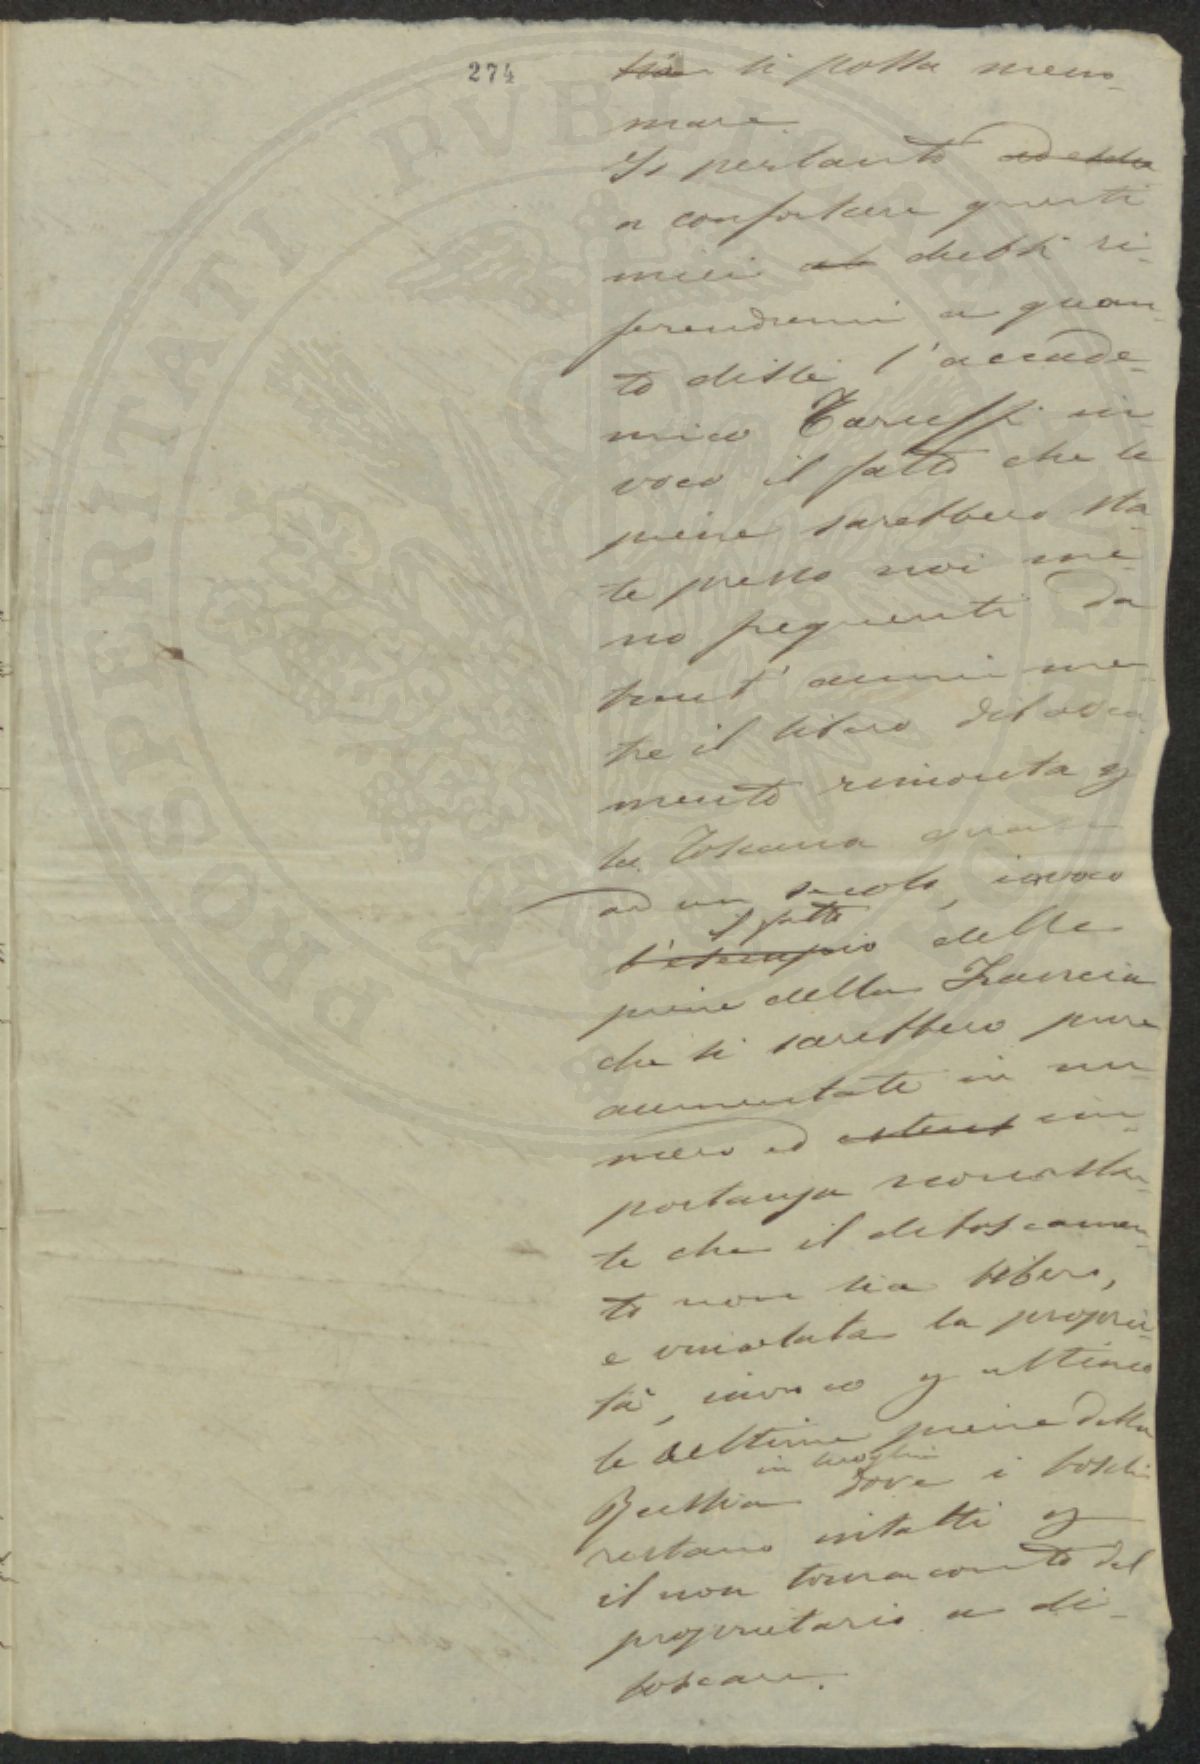 274
si possa meno-
mare.
Io pertanto
a confortare questi
miei dubbi ri-
ferendomi a quan-
to disse l'accade-
mico Taruffi in-
voco il fatto che le
piene sarebbero sta-
te presso noi me-
no frequenti da
trent'anni men-
tre il libero disbosca-
mento rimonta p
la Toscana quasi
ad un secolo, invoco
il fatto
l'esempio delle
piene della Francia
che si sarebbero pure
aumentate in nu-
mero ed estens im-
portanza nonostan-
te che il disboscamen-
to non sia libero,
e vincolata la proprie-
tà, invoco p ultimo
le ultime piene della
in luoghi
Russia dove i boschi
restano intatti p
il non tornaconto del
proprietario a di-
boscare.
PROSPERITATI PVBLICAE